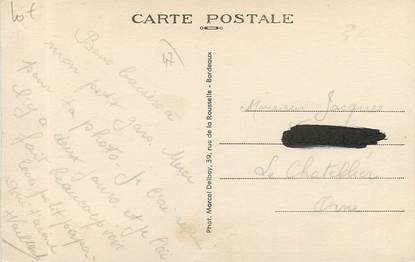 lot
CARTE POSTALE
Bons baisers à
mon petit gars. Merci
pour ta photo. Je l'ai
il y a deux jours et je l'ai
fait beaucoup voir
ton petit papa
qui t'aime
Phot. Marcel Delboy, 39, rue de la Rousselle - Bordeaux
Monsieur Jacques
Le Chatellier
Orne